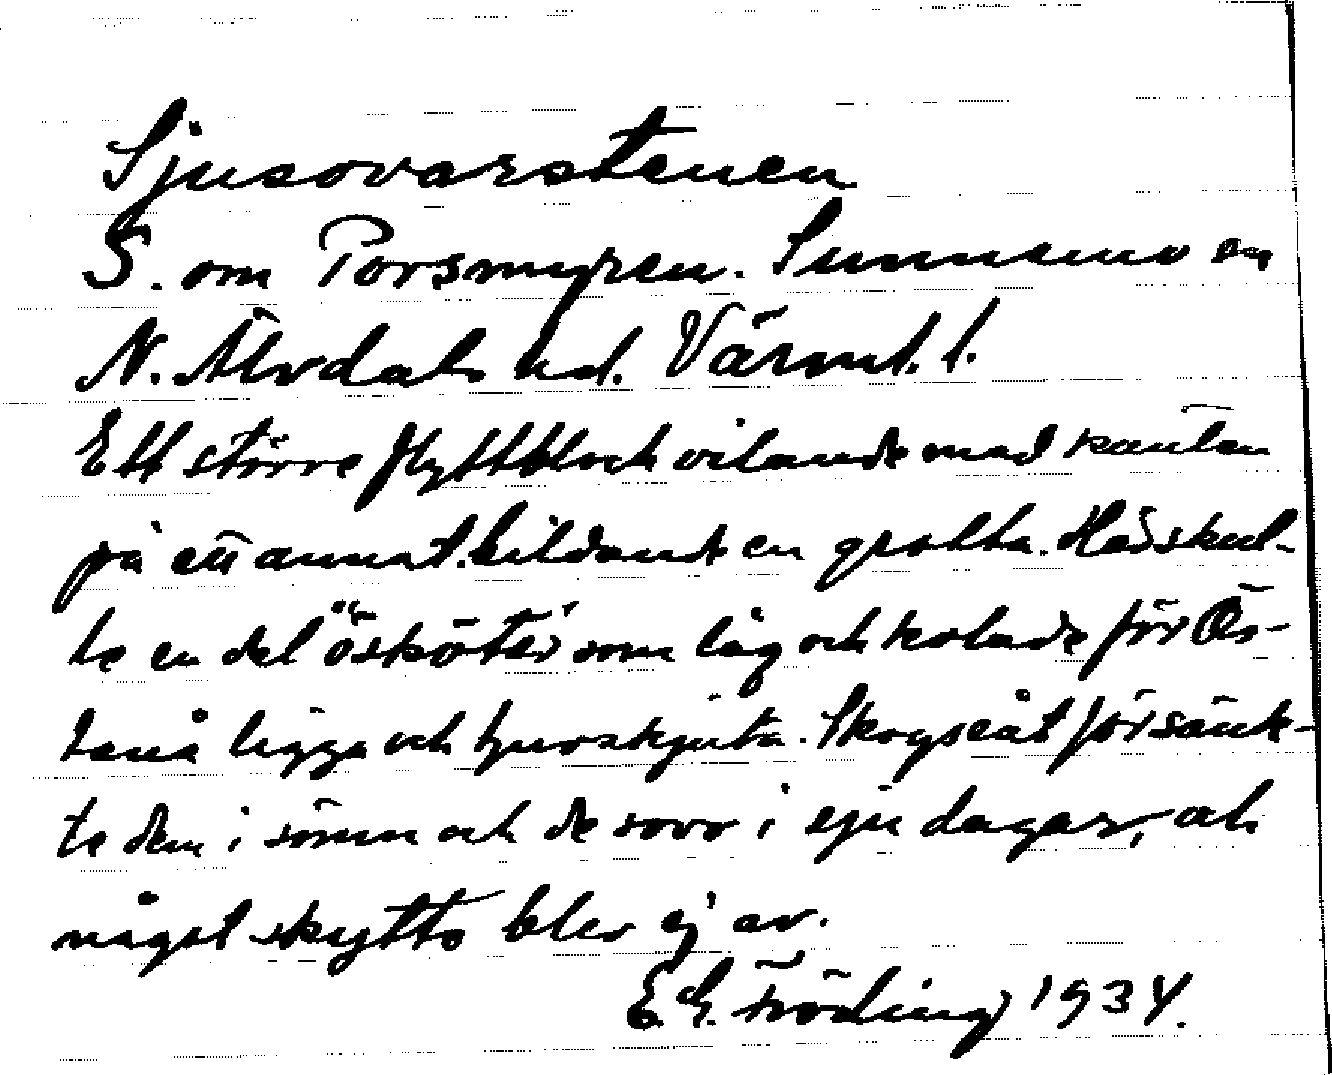 Sjusovarstenen
S. om Porsmyren. Sunnemo sn
N. Älvdals hd. Värml. l.
Ett större flyttblock vilande med kanten
på ett annat. bildande en grotta. Här skul-
le en del "ösköter" som låg och kolade för Ös-
tanå ligga och tjuvskjuta. Skogsrået försänk-
te dem i sömn och de sovo i sju dagar, och
något skytte blev ej av.
E.G. Fröding 1934.